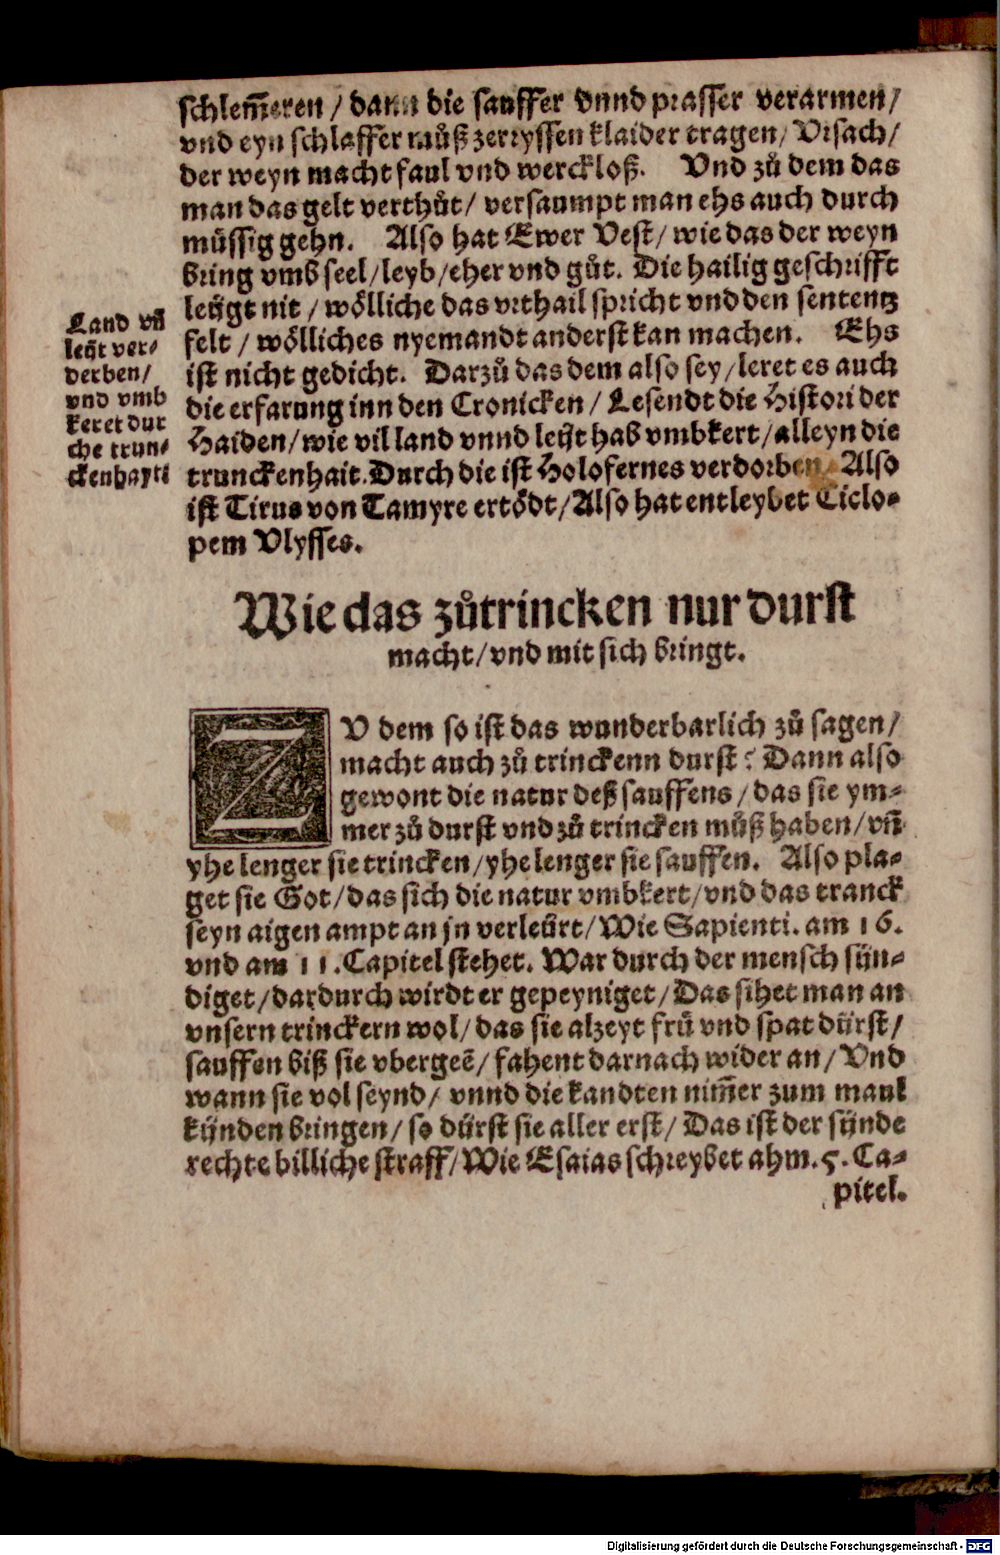 schlem̃eren / dann die sauffer vnnd prasser verarmen/
vnd eyn schlaffer můß zerryssen klaider tragen/ Vrsach/
der weyn macht faul vnd werckloß. Vnd zů dem das
man das gelt verthůt/ versaumpt man ehs auch durch
müssig gehn. Also hat Ewer Vest/ wie das der weyn
bring vmb seel/leyb/eher vnd gůt. Die hailig geschrifft
leügt nit / wölliche das vrthail spricht vnd den sententz
felt / wölliches nyemandt anderst kan machen. Ehs
ist nicht gedicht. Darzů das dem also sey/leret es auch
die erfarung inn den Cronicken / Lesendt die Histori der
Haiden/wie vil land vnnd leüt hab vmbkert/alleyn die
trunckenhait. Durch die ist Holofernes verdorben/ Also
ist Tirus von Tamyre ertödt/Also hat entleybet Ciclo-
pem Vlysses.
Land vñ
leüt ver-
derben/
vnd vmb
keret dur
che trun-
ckenhayt
Wie das zůtrincken nur durst
macht/vnd mit sich bringt.
ZV dem so ist das wunderbarlich zů sagen/
macht auch zů trinckenn durst? Dann also
gewont die natur deß sauffens/das sie ym-
mer zů durst vnd zů trincken můß haben/vñ
yhe lenger sie trincken/yhe lenger sie sauffen. Also pla-
get sie Got/das sich die natur vmbkert/vnd das tranck
seyn aigen ampt an jn verleürt/Wie Sapienti. am 16.
vnd am 11. Capitel stehet. War durch der mensch sün-
diget/dardurch wirdt er gepeyniget/Das sihet man an
vnsern trinckern wol/das sie alzeyt frü vnd spat dürst/
sauffen biß sie vbergeē/fahent darnach wider an/Vnd
wann sie vol seynd/ vnnd die kandten nim̃er zum maul
künden bringen/so dürst sie aller erst/Das ist der sünde
rechte billiche straff/Wie Esaias schreybet ahm.5.Ca-
pitel.
Digitalisierung gefördert durch die Deutsche Forschungsgemeinschaft - DFG